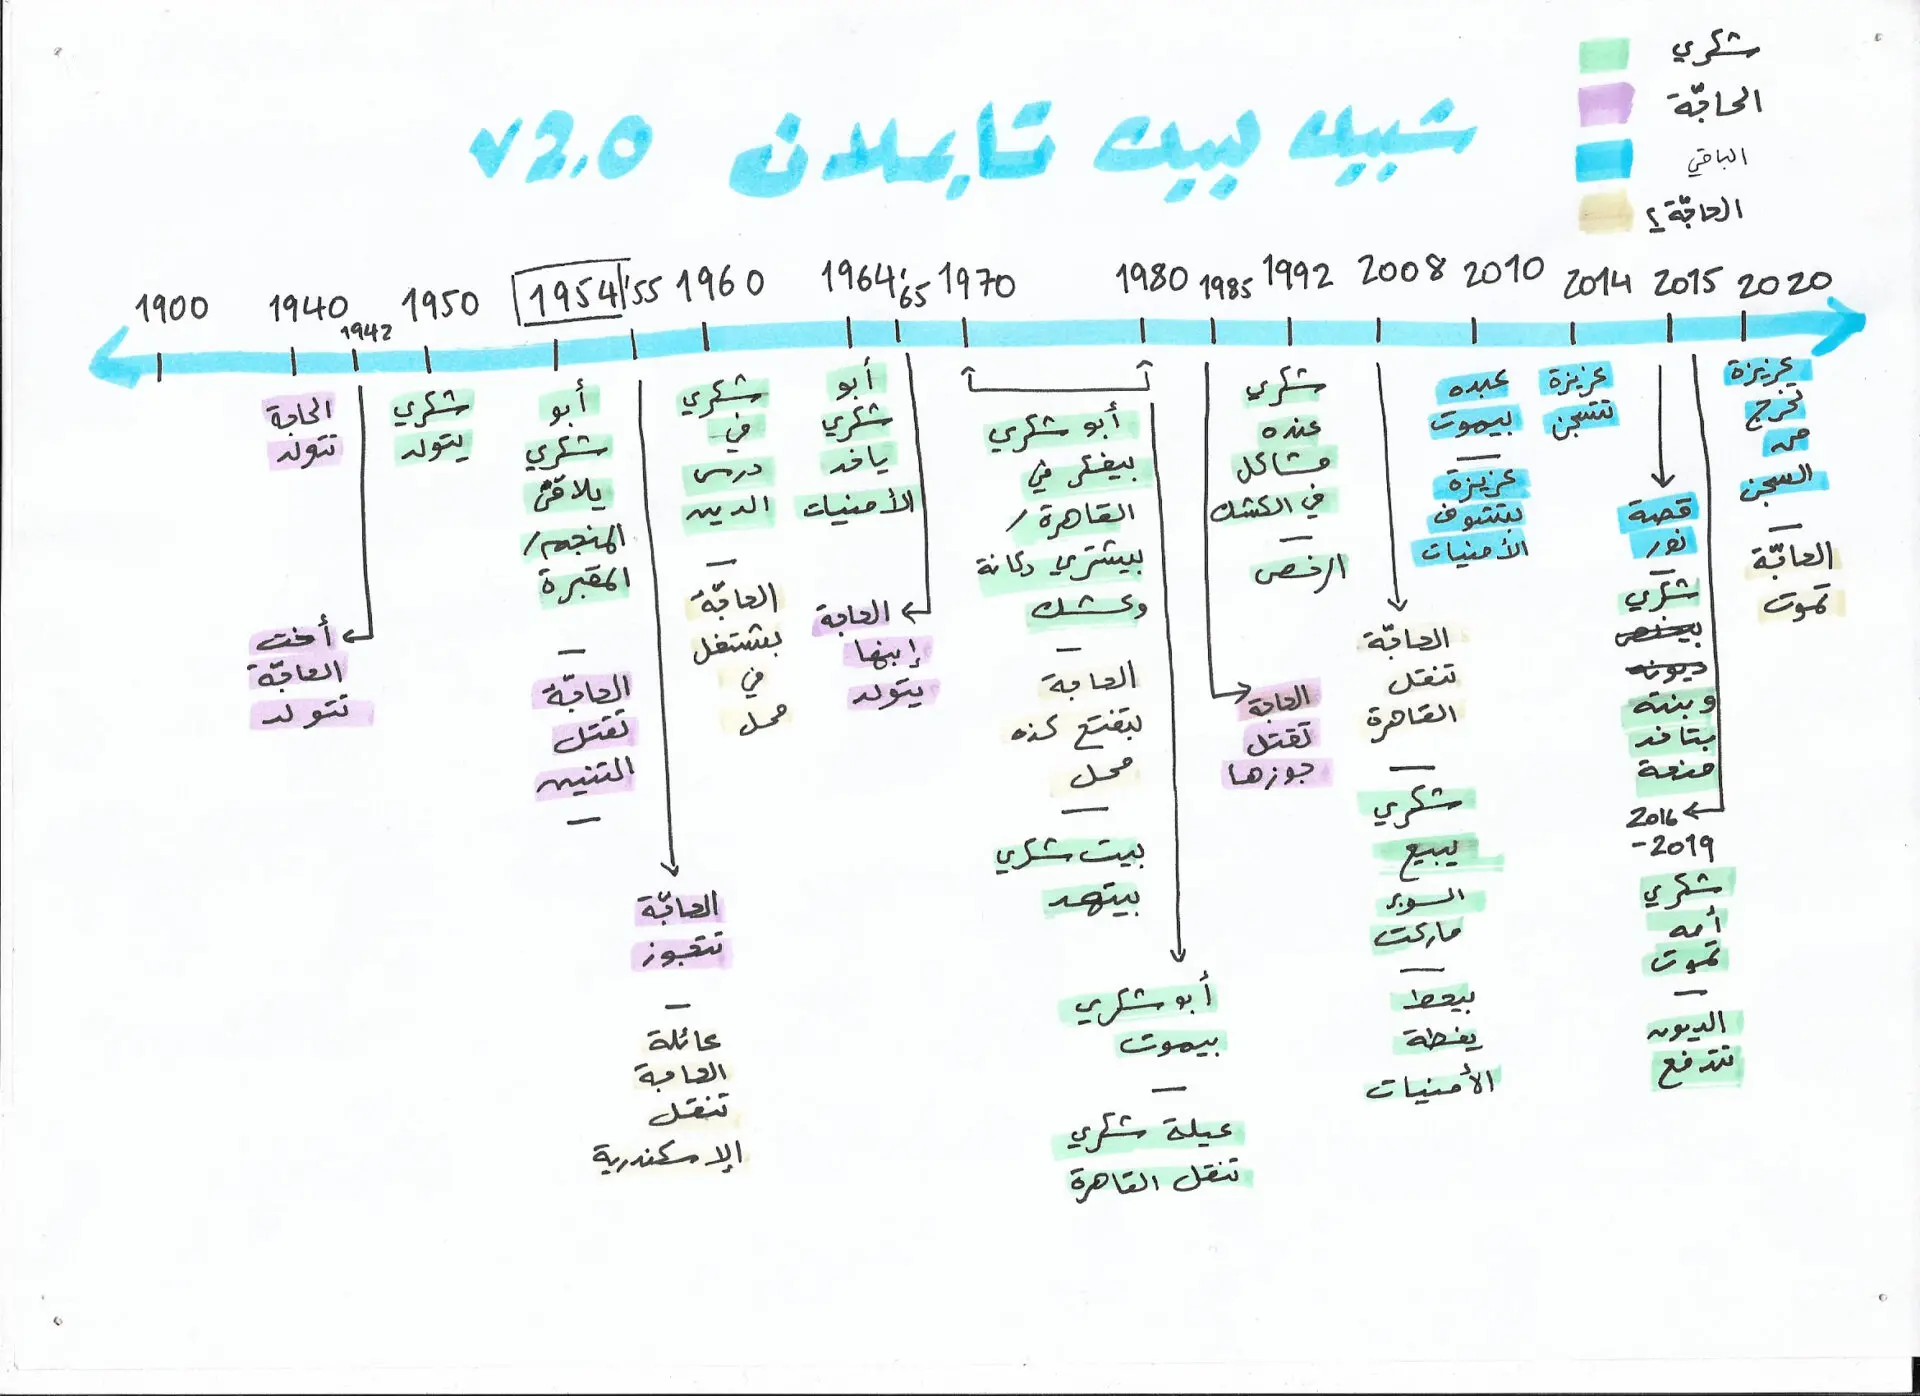 شبيك لبيك تايملاين v2.0
شكري
الحاجّة
الباقي
الحاجّة؟
1900
1940
1942
1950
1954
'55
1960
1964
'65
1970
1980
1985
1992
2008
2010
2014
2015
2020
الحاجة
تتولد
أخت
الحاجّة
تتولد
شكري
يتولد
أبو
شكري
يلاقي
المنجم/
المقبرة
—
الحاجّة
تقتل
التنين
—
الحاجّة
تتجوز
—
عائلة
الحاجة
تنقل
الإسكندرية
شكري
في
درس
الدين
—
الحاجّة
بتشتغل
في
محل
أبو
شكري
ياخد
الأمنيات
الحاجة
إبنها
يتولد
أبو شكري
بيفكر في
القاهرة/
بيشتري دكانة
وكشك
—
الحاجة
بتفتح كذه
محل
—
بيت شكري
بيتهد
أبو شكري
بيموت
—
عيلة شكري
تنقل القاهرة
الحاجة
تقتل
جوزها
شكري
عنده
مشاكل
في الكشك
—
الرخص
الحاجّة
تنقل
القاهرة
—
شكري
يبيع
السوبر
ماركت
—
بيحط
يفطة
الأمنيات
عبده
بيموت
—
عزيزة
بتشوف
الأمنيات
عزيزة
تتسجن
قصة
نور
—
شكري
بيخلص
ديونه
وبنته
بتاخد
منحة
2016
-2019
شكري
أمه
تموت
—
الديون
تتدفع
عزيزة
تخرج
من
السجن
—
الحاجّة
تموت